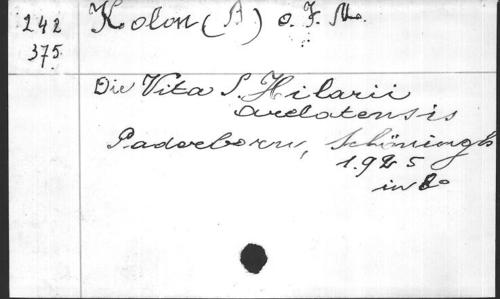 242 Kolon (A) o. F. M.
375
Die Vita S. Hilarii
arelatensis
Paderborn, Schöningh
1925
in 8o